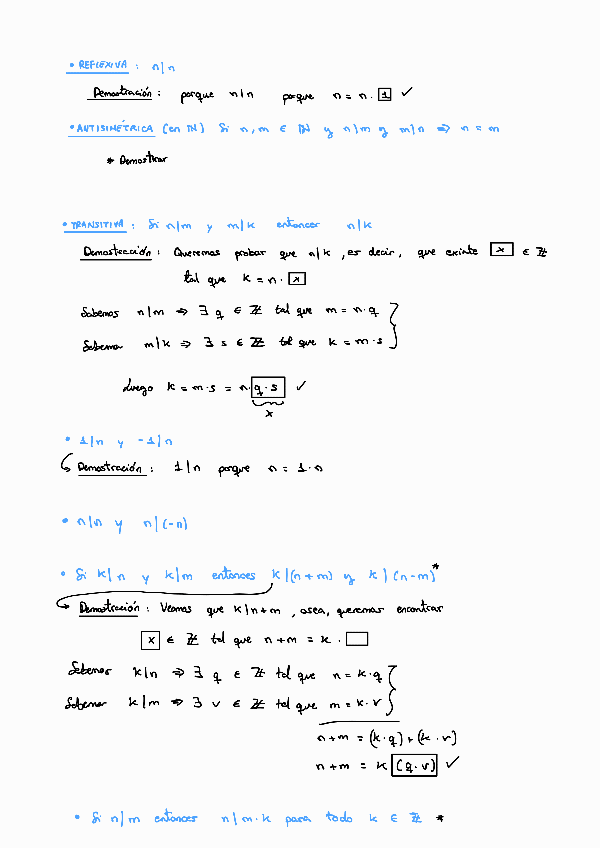 • REFLEXIVA : n|n
Demostración : porque n|n porque n = n · 1 ✓
• ANTISIMÉTRICA (en ℕ) Si n, m ∈ ℕ y n|m y m|n ⇒ n = m
* Demostrar
• TRANSITIVA : Si n|m y m|k entonces n|k
Demostración : Queremos probar que n|k , es decir, que existe x ∈ ℤ
tal que k = n · x
Sabemos n|m ⇒ ∃ q ∈ ℤ tal que m = n · q
Sabemos m|k ⇒ ∃ s ∈ ℤ tal que k = m · s
Luego k = m · s = n · q · s ✓
x
• 1|n y -1|n
Demostración : 1|n porque n = 1 · n
• n|n y n|(-n)
• Si k|n y k|m entonces k|(n+m) y k|(n-m)*
Demostración : Veamos que k|n+m , osea, queremos encontrar
x ∈ ℤ tal que n+m = k ·
Sabemos k|n ⇒ ∃ q ∈ ℤ tal que n = k · q
Sabemos k|m ⇒ ∃ v ∈ ℤ tal que m = k · v
n+m = (k · q) + (k · v)
n+m = k (q · v) ✓
• Si n|m entonces n|m · k para todo k ∈ ℤ *